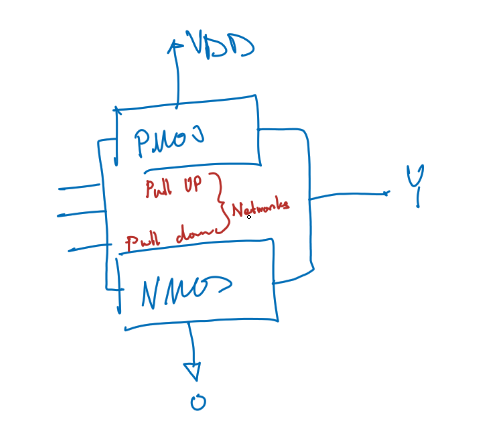 VDD
PMOS
Pull UP
Networks
Pull down
NMOS
Y
0